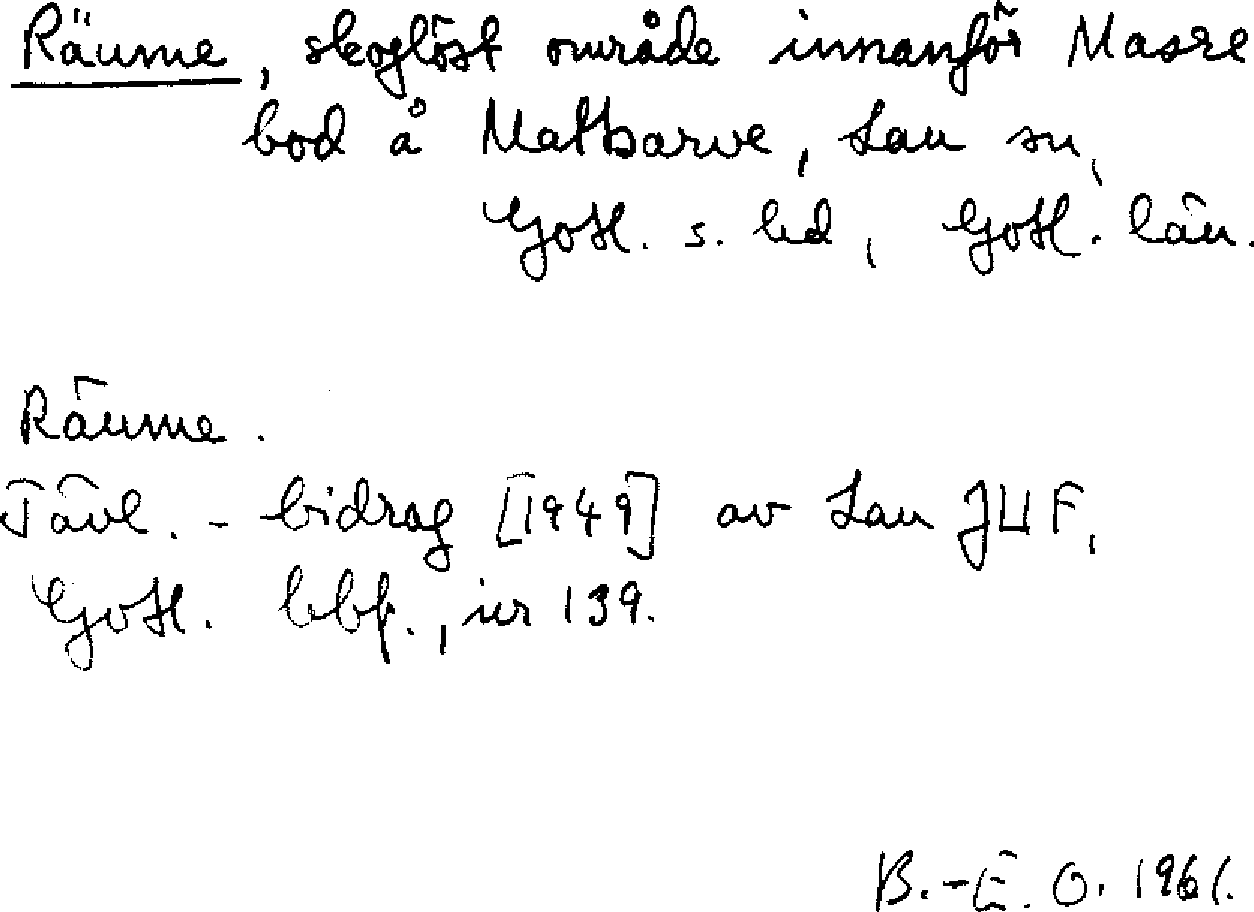 Räume, skoglöst område innanför Masre
bod å Mattsarve, Lau sn,
Gotl. s. hd, Gotl. län.
Räume.
Tävl.-bidrag [1949] av Lau JUF,
Gotl. hbf., nr 139.
B.-E. O. 1961.